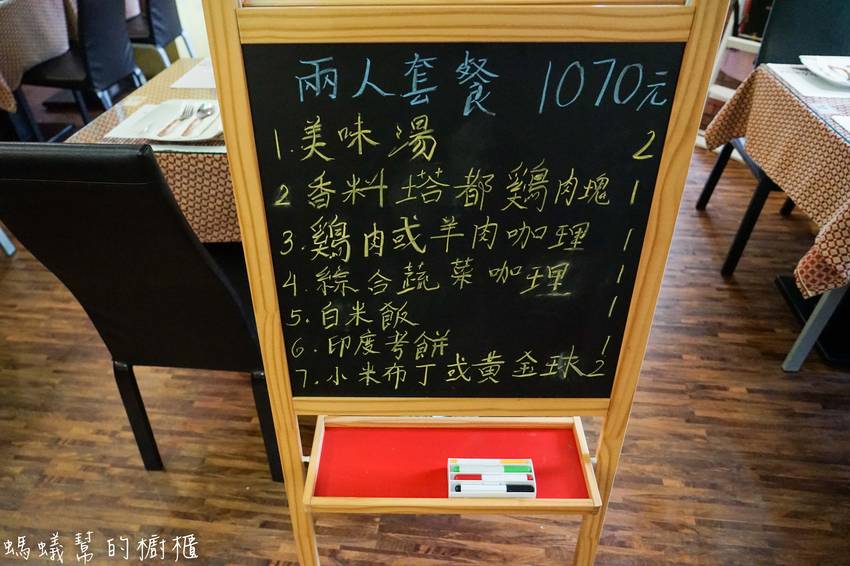 兩人套餐 1070元
1. 美味湯 2
2 香料塔都鷄肉塊 1
3. 鷄肉或羊肉咖哩 1
4. 綜合蔬菜咖哩 1
5. 白米飯 1
6. 印度考餅 1
7. 小米布丁或黃金球 2
螞蟻幫的櫥櫃